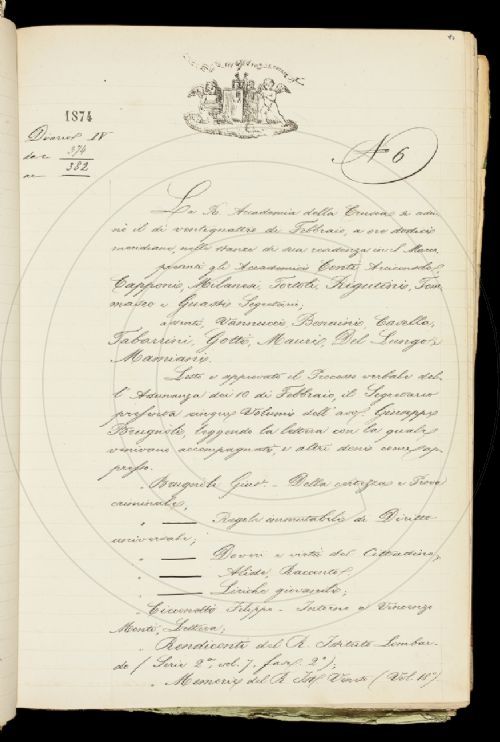 1874
Diario IV
da c 374
a c 382
N 6
La R. Accademia della Crusca si adu-
nò il dì ventiquattro di Febbraio, a ore dodici
meridiane, nelle stanze di sua residenza in S. Marco,
presenti gli Accademici Conti Arciconsolo,
Capponi, Milanesi, Tortoli, Rigutini, Tom-
maseo e Guasti Segretario;
assenti, Vannucci, Bonaini, Casella,
Tabarrini, Gotti, Mauri, Del Lungo e
Mamiani.
Letto e approvato il Processo verbale del-
l'Adunanza dei 10 di Febbraio, il Segretario
presenta cinque Volumi dell'avv. Giuseppe
Brugnoli, leggendo la lettera con la quale
venivano accompagnati, e altri doni come ap-
presso.
Brugnoli Gius. - Della certezza e Prova
criminale;
" —— Regole immutabili di Diritto
universale;
" —— Doveri e virtù del Cittadino;
" —— Alide, Racconto;
" —— Liriche giovanili;
Cicconetti Filippo - Intorno a Vincenzo
Monti, Lettera;
Rendiconti del R. Istituto Lombar-
do (Serie 2ª, vol. 7, fasc. 2º);
Memorie del R. Ist. Veneto (Vol. 18º)